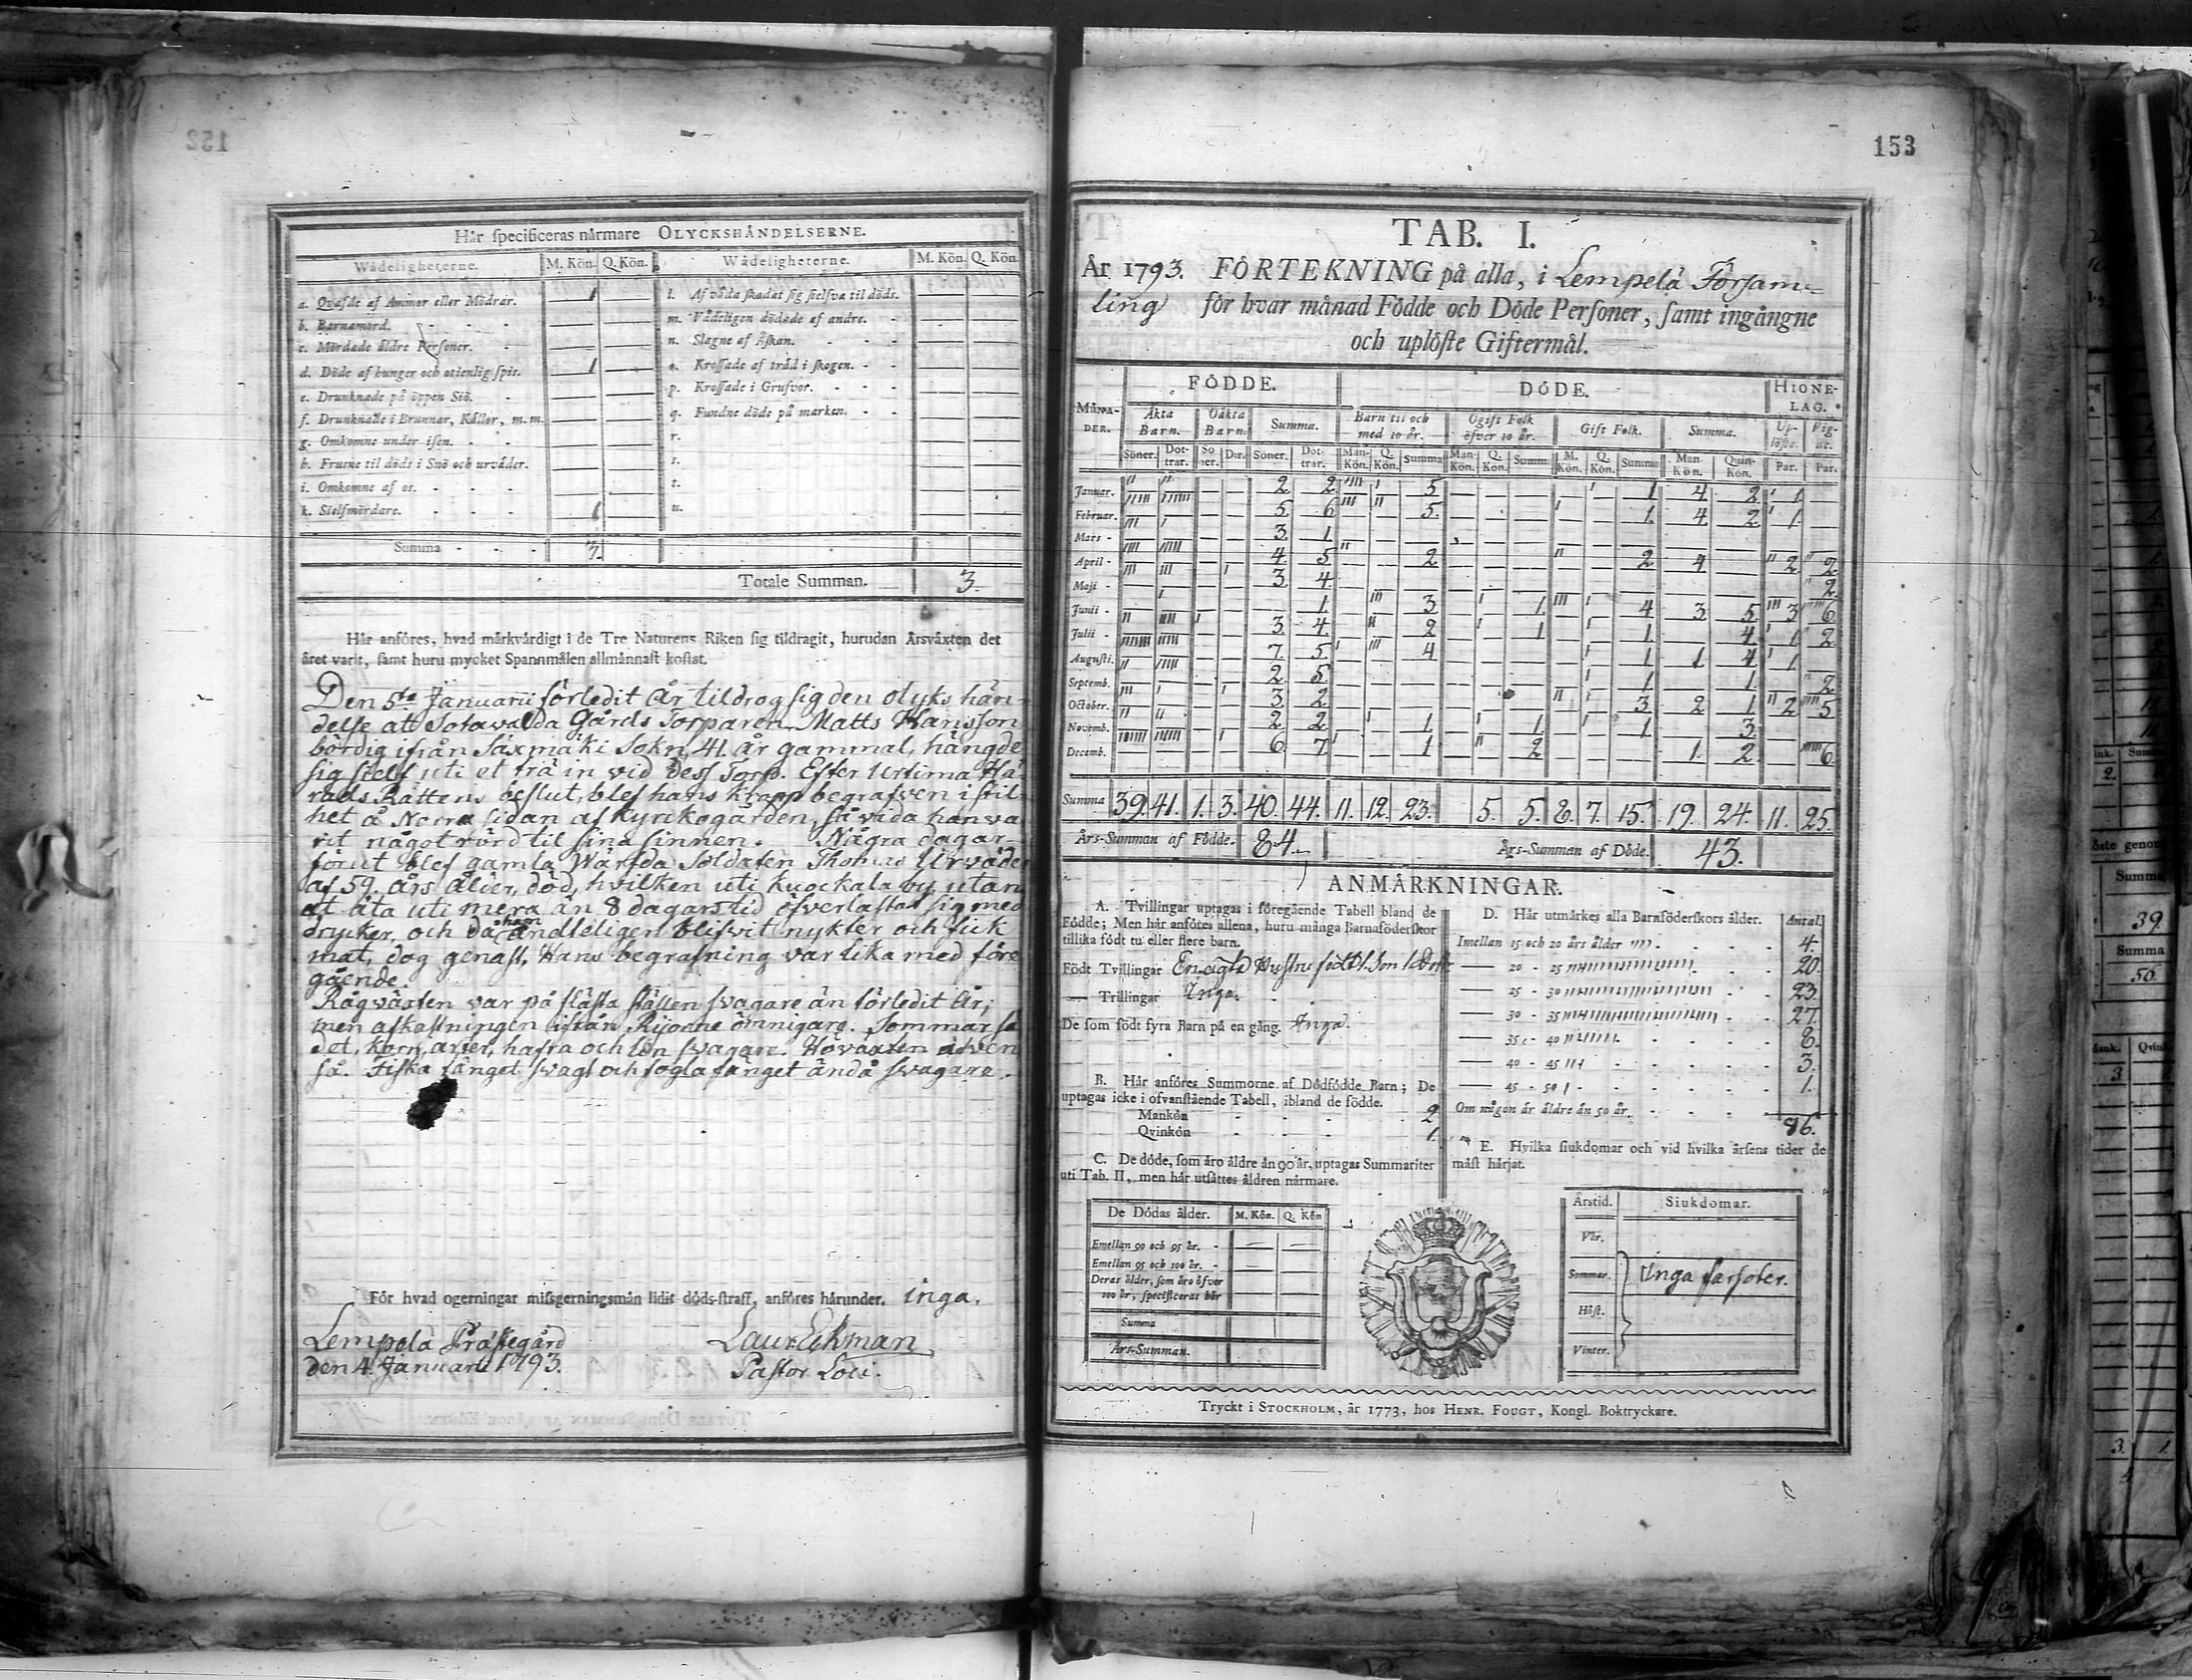 Hår specificeras nårmare OLYCKSHÅNDELSERNE.
Wådeligheterne. M. Kön. Q. Kön. Wådeligheterne. M. Kön. Q. Kön.
a. Qvafde af Ammor eller Mödrar. 1
b. Barnamord.
c. Mördade äldre Personer.
d. Döde af hunger och otienlig spis. 1
e. Drunknade på öppen Siö.
f. Drunknade i Brunnar, Källor, m.m.
g. Omkomne under isen.
h. Frusne til döds i Snö och urväder.
i. Omkomne af os.
k. Sielfmördare. 1
Summa 3.
l. Af våda skadat sig sielfva til döds.
m. Vådeligen dödade af andre.
n. Slagne af Åskan.
o. Krossade af träd i skogen.
p. Krossade i Grufvor.
q. Fundne döde på marken.
r.
s.
t.
u.
Totale Summan. 3.
Hår anföres, hvad mårkvårdigt i de Tre Naturens Riken sig tildragit, hurudan Årsvåxten det
året varit, samt huru mycket Spannmålen allmånnast kostat.
Den 5te Januarii förledit År tildrog sig den olyks hän-
delse att Sotavalda Gårds Torparen Matts Hansson
bördig ifrån Säxmäki Sokn, 41. år gammal, hängde
sig sielf uti et trä in vid dess Torp. Efter Urtima Hä-
rads Rättens beslut, blef hans kropp begrafven i stil-
het å Norra sidan af Kyrkogården, så vida han va-
rit något rörd til sina sinnen. Några dagar
förut blef gamla Wärfda Soldaten Thomas Urväder
af 59. års ålder, död, hvilken uti Kuockala by utan
at äta uti mera än 8 dagars tid öfverlastat sig med
drycker, och då han ändteligen blifvit nykter och fick
mat, dog genast, Hans begrafning var lika med före
gående.
Rågväxten var på flästa ställen svagare än förledit År,
men afkastningen ifrån Rijorne ömnigare. Sommar sä
det, korn, ärter, hafra och lin svagare. Höväxten äfven
så. Fiska fänget svagt och fogla fänget ändå svagare.
För hvad ogerningar missgerningsmån lidit döds-straff, anföres hårunder. inga.
Lempelä Prästegård
den 4. Januarii 1793.
Laur Ekman
Pastor Loci.
153
TAB. I.
År 1793. FÖRTEKNING på alla, i Lempelä Försam-
ling för hvar månad Födde och Döde Personer, samt ingångne
och uplöste Giftermål.
FÖDDE. DÖDE. HIONE-
LAG.
MÅNA-
DER. Äkta
Barn. Oäkta
Barn. Summa. Barn til och
med 10 år. Ogift Folk
öfver 10 år. Gift Folk. Summa. Up-
löste. Vig-
de.
Söner. Döt-
trar. Sö
ner. Dtr. Söner. Döt-
trar. Man-
Kön. Q.
Kön. Summa Man-
Kön. Q.
Kön. Summ M.
Kön. Q.
Kön. Summa Man-
Kön. Quin-
Kön. Par. Par.
Januar. 2 2 5 1 4 2 1
Februar. 5. 6 5. 1. 4 2 1.
Mars 3. 1
April 4. 5 2 2 4 2 2
Maji 3 4 2
Junii 1 3 1 4 3 5 3 6
Julii 3. 4. 2 1 1. 4. 1 2.
Augusti. 7. 5 4 1 1 4 1.
Septemb. 2 5. 1 1. 2
October. 3 2 3 2 1 2 5
Novemb. 2 2 1 1. 1 3.
Decemb. 6. 7. 1 2 1. 2. 6.
Summa 39. 41. 1. 3. 40. 44. 11. 12. 23. 5. 5. 8. 7. 15. 19. 24. 11. 25.
Års-Summan af Födde. 84. Års-Summan af Döde. 43.
ANMÅRKNINGAR.
A. Tvillingar uptagas i föregående Tabell bland de
Födde; Men hår anföres allena, huru många Barnaföderskor
tillika födt tu eller flere barn.
Födt Tvillingar En ägta Hustru födt 1. Son 1 Dotr
— Trillingar Inga.
De som födt fyra Barn på en gång. Inga.
B. Hår anföres Summorne af Dödfödde Barn; De
uptagas icke i ofvanstående Tabell, ibland de födde.
Mankön 2
Qvinkön 1.
C. De döde, som åro åldre ån 90 år, uptagas Summariter
uti Tab. II, men hår utsåttes åldren nårmare.
De Dödas ålder. M. Kön. Q. Kön
Emellan 90 och 95 år.
Emellan 95 och 100 år.
Deras ålder, som äro öfver
100 år, specificeras här
Summa
Års-Summan.
D. Hår utmårkes alla Barnföderskors ålder. Antal.
Imellan 15 och 20 års ålder 4.
— 20 - 25 20.
— 25 - 30 23.
— 30 - 35 27.
— 35 - 40 8.
— 40 - 45 3.
— 45 - 50 1.
Om någon är äldre än 50 år.
86.
E. Hvilka siukdomar och vid hvilka årsens tider de
måst hårjat.
Årstid. Siukdomar.
Vår.
Sommar. Inga farsoter.
Höst.
Vinter.
Tryckt i STOCKHOLM, år 1773, hos HENR. FOUGT, Kongl. Boktryckare.